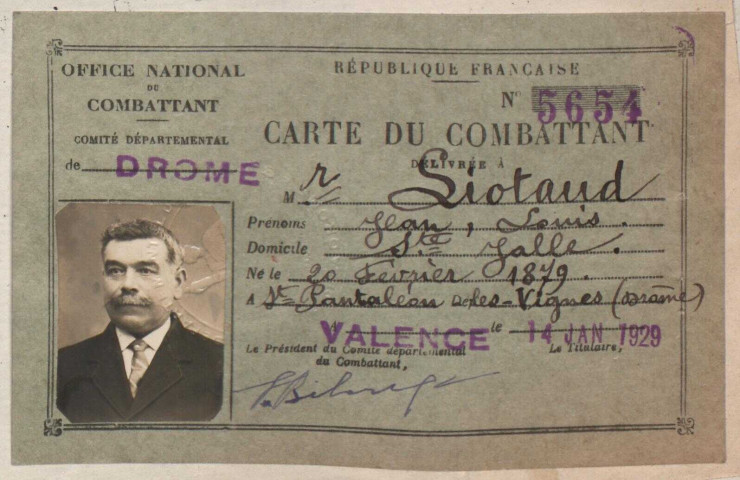 OFFICE NATIONAL
DU
COMBATTANT
COMITÉ DÉPARTEMENTAL
de DROME
RÉPUBLIQUE FRANÇAISE
N° 5654
CARTE DU COMBATTANT
DÉLIVRÉE À
M r Liotaud
Prénoms Jean, Louis.
Domicile Ste Jalle.
Né le 20 Février 1879.
A St Pantaléon les-Vignes (Drôme)
VALENCE le 14 JAN 1929
Le Président du Comité départemental
du Combattant,
Le Titulaire,